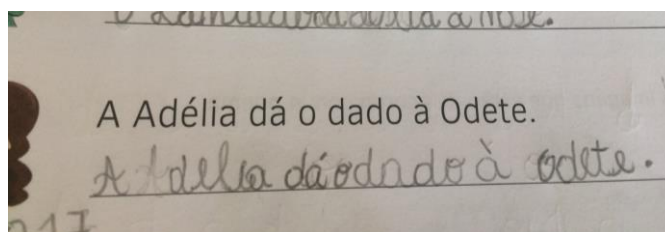 A Adélia dá o dado à Odete.
A Adelia dá o dado à Odete.